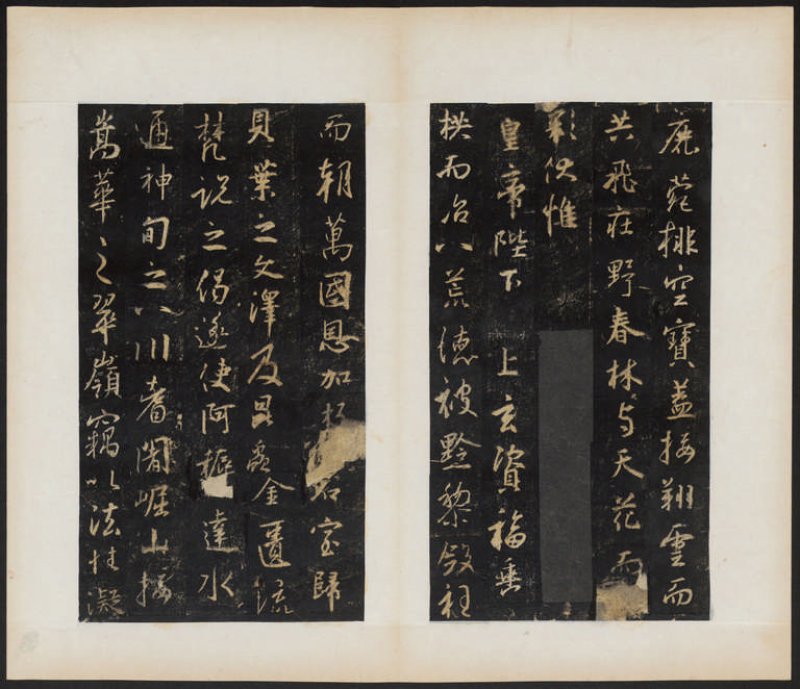 鹿菀排空寶蓋接翔雲而
共飛庄野春林与天花而
彩伏惟
皇帝陛下 上玄資福垂
拱而治八荒德被黔黎斂衽
而朝萬國恩加石室歸
貝葉之文澤及昆蟲金匱流
梵說之偈遂使阿耨達水
通神甸之八川耆闍崛山接
嵩華之翠嶺竊以法性凝